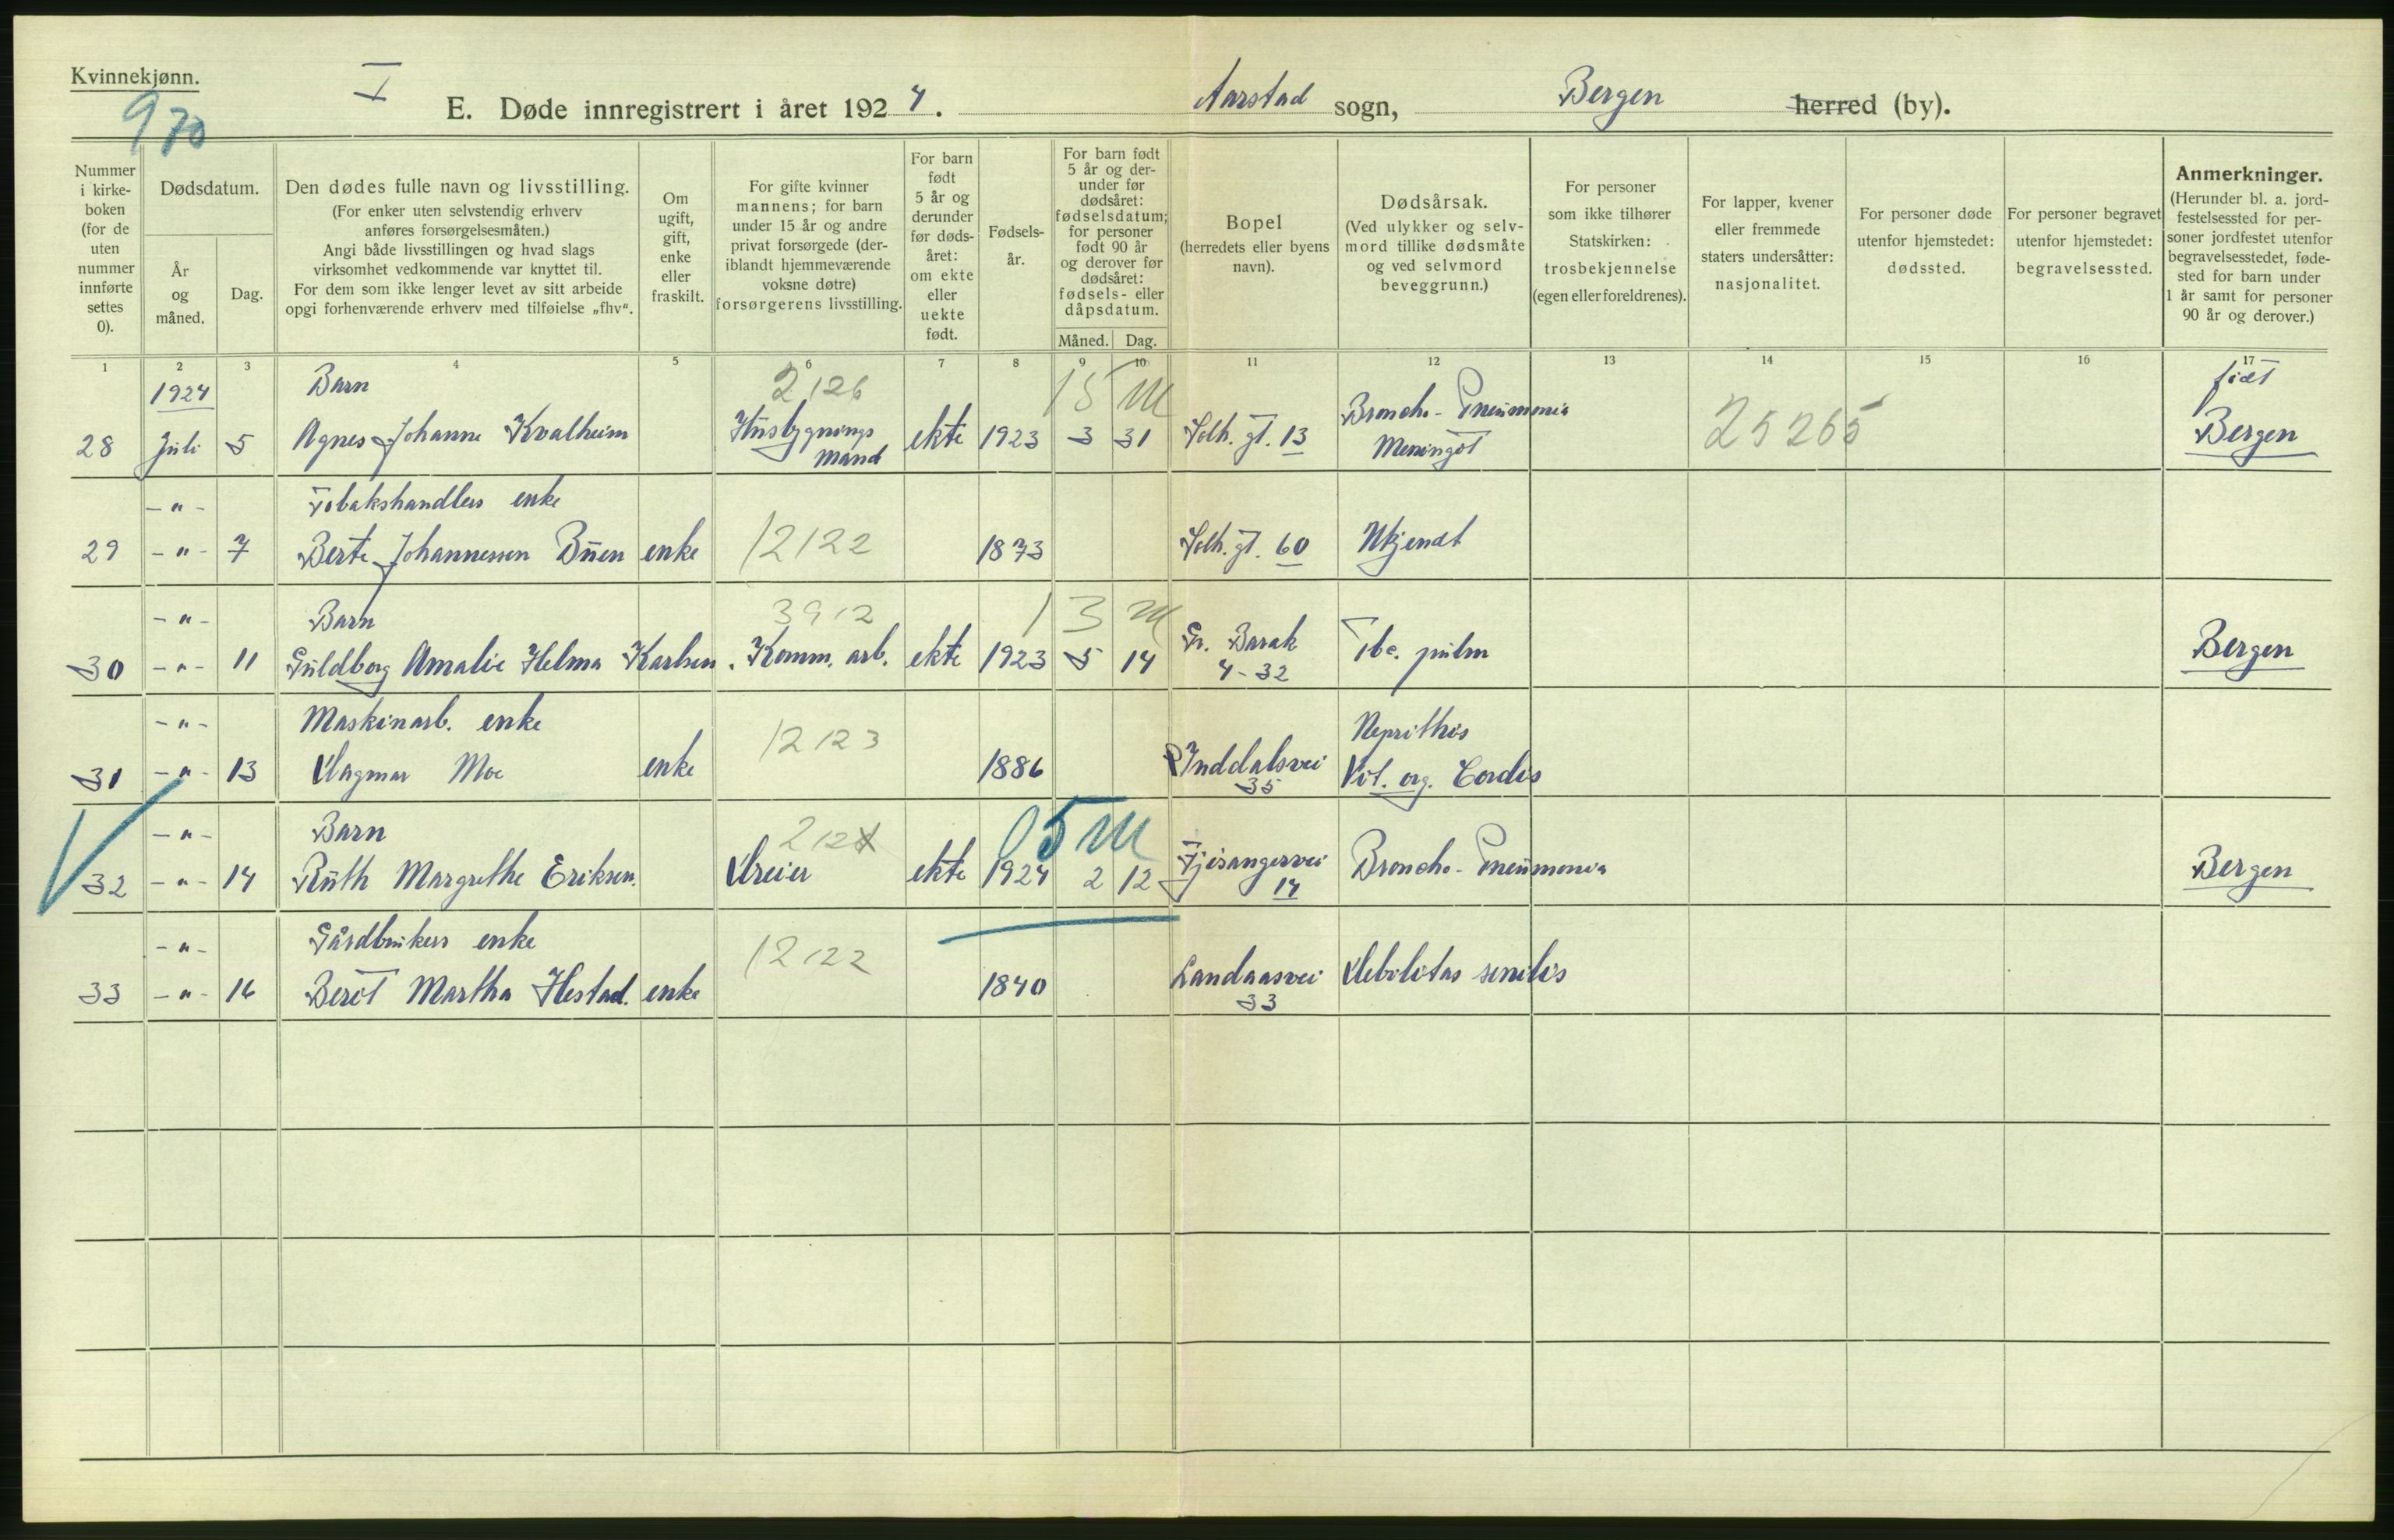 Kvinnekjønn.
970
I
E. Døde innregistrert i året 1924. Aarstad sogn, Bergen herred (by).
Nummer i kirke-boken (for de uten nummer innførte settes 0).
Dødsdatum.
År og måned.
Dag.
Den dødes fulle navn og livsstilling.
(For enker uten selvstendig erhverv anføres forsørgelsesmåten.)
Angi både livsstillingen og hvad slags virksomhet vedkommende var knyttet til.
For dem som ikke lenger levet av sitt arbeide opgi forhenværende erhverv med tilføielse „fhv“.
Om ugift, gift, enke eller fraskilt.
For gifte kvinner mannens; for barn under 15 år og andre privat forsørgede (deriblandt hjemmeværende voksne døtre) forsørgerens livsstilling.
For barn født 5 år og derunder før dødsåret: om ekte eller uekte født.
Fødsels-år.
For barn født 5 år og derunder før dødsåret: fødselsdatum; for personer født 90 år og derover før dødsåret: fødsels- eller dåpsdatum.
Måned. Dag.
Bopel (herredets eller byens navn).
Dødsårsak.
(Ved ulykker og selvmord tillike dødsmåte og ved selvmord beveggrunn.)
For personer som ikke tilhører Statskirken: trosbekjennelse (egen eller foreldrenes).
For lapper, kvener eller fremmede staters undersåtter: nasjonalitet.
For personer døde utenfor hjemstedet: dødssted.
For personer begravet utenfor hjemstedet: begravelsessted.
Anmerkninger.
(Herunder bl. a. jordfestelsessted for personer jordfestet utenfor begravelsesstedet, fødested for barn under 1 år samt for personer 90 år og derover.)
1 2 3 4 5 6 7 8 9 10 11 12 13 14 15 16 17
1924 Barn 2126 15 M Broncho-Pneumonia født
28 Juli 5 Agnes Johanne Kvalheim Husbygnings mand ekte 1923 3 31 Solh. gt. 13 Meningit 25265 Bergen
-"- Tobakshandlers enke
29 -"- 7 Berte Johannessen Buen enke 12122 1873 Solh. gt. 60 Ukjendt
-"- Barn 3912 13 M
30 -"- 11 Guldborg Amalie Helma Karlsen. Komm. arb. ekte 1923 5 14 Gr. Barak 4-32 Tbc. pulm Bergen
-"- Maskinarb. enke 12123 Neprithis
31 -"- 13 Dagmar Moe enke 1886 Inddalsvei 35 Vit. org. Cordis
-"- Barn 212 05 M
32 -"- 14 Ruth Margrethe Eriksen. Dreier ekte 1924 2 12 Fjøsangervei 14 Broncho-Pneumonia Bergen
-"- Gårdbrukers enke 12122
33 -"- 16 Berit Martha Hestad. enke 1840 Landaasvei 33 Debilitas senilis